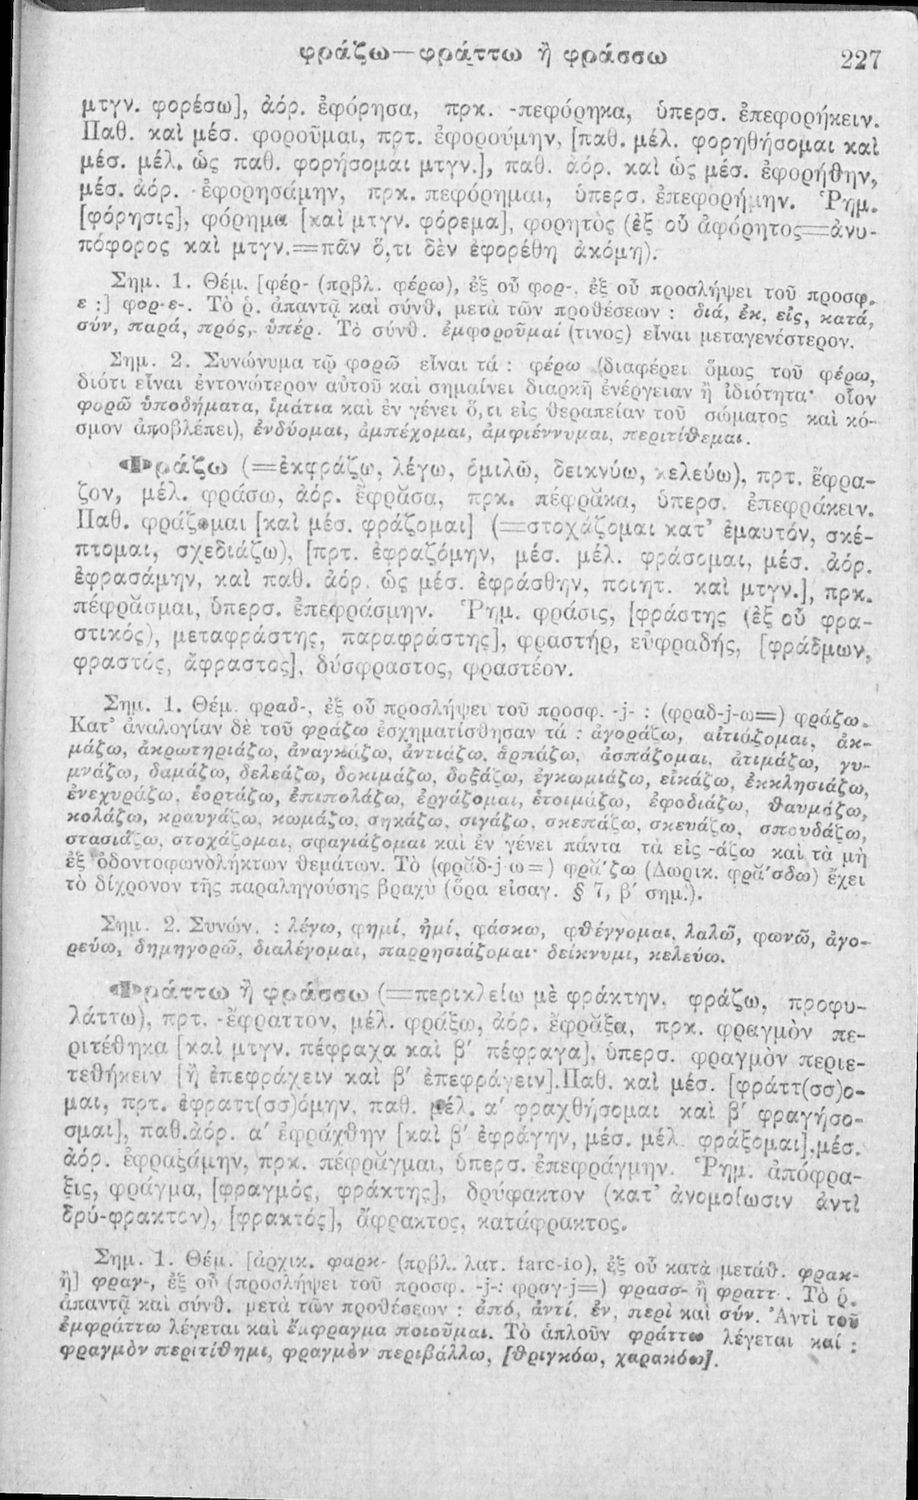 φράζω—φράττω ἢ φράσσω 227
μτγν. φορέσω], ἀόρ. ἐφόρησα, πρκ. -πεφόρηκα, ὑπερσ. ἐπεφορήκειν.
Παθ. καὶ μέσ. φοροῦμαι, πρτ. ἐφορούμην, [παθ. μέλ. φορηθήσομαι καὶ
μέσ. μέλ. ὡς παθ. φορήσομαι μτγν.], παθ. ἀόρ. καὶ ὡς μέσ. ἐφορήθην,
μέσ. ἀόρ. ἐφορησάμην, πρκ. πεφόρημαι, ὑπερσ. ἐπεφορήμην. Ῥημ.
[φόρησις], φόρημα [καὶ μτγν. φόρεμα], φορητὸς (ἐξ οὗ ἀφόρητος=ἀνυ-
πόφορος καὶ μτγν.=πᾶν ὅ,τι δὲν ἐφορέθη ἀκόμη).
Σημ. 1. Θέμ. [φέρ- (πρβλ. φέρω), ἐξ οὗ φορ-, ἐξ οὗ προσλήψει τοῦ προσφ.
ε :] φορ-ε-. Τὸ ῥ. ἀπαντᾷ καὶ σύνθ. μετὰ τῶν προθέσεων : διά, ἐκ, εἰς, κατά,
σύν, παρά, πρός, ὑπέρ. Τὸ σύνθ. ἐμφοροῦμαί (τινος) εἶναι μεταγενέστερον.
Σημ. 2. Συνώνυμα τῷ φορῶ εἶναι τά : φέρω (διαφέρει ὅμως τοῦ φέρω,
διότι εἶναι ἐντονώτερον αὐτοῦ καὶ σημαίνει διαρκῆ ἐνέργειαν ἢ ἰδιότητα· οἷον
φορῶ ὑποδήματα, ἱμάτια καὶ ἐν γένει ὅ,τι εἰς θεραπείαν τοῦ σώματος καὶ κό-
σμον ἀποβλέπει), ἐνδύομαι, ἀμπέχομαι, ἀμφιέννυμαι, περιτίθεμαι.
Φράζω (=ἐκφράζω, λέγω, ὁμιλῶ, δεικνύω, κελεύω), πρτ. ἔφρα-
ζον, μέλ. φράσω, ἀόρ. ἔφρᾰσα, πρκ. πέφρᾰκα, ὑπερσ. ἐπεφράκειν.
Παθ. φράζομαι [καὶ μέσ. φράζομαι] (=στοχάζομαι κατ' ἐμαυτόν, σκέ-
πτομαι, σχεδιάζω), [πρτ. ἐφραζόμην, μέσ. μέλ. φράσομαι, μέσ. ἀόρ.
ἐφρασάμην, καὶ παθ. ἀόρ. ὡς μέσ. ἐφράσθην, ποιητ. καὶ μτγν.], πρκ.
πέφρᾰσμαι, ὑπερσ. ἐπεφράσμην. Ῥημ. φράσις, [φράστης (ἐξ οὗ φρα-
στικός), μεταφράστης, παραφράστης], φραστήρ, εὐφραδής, [φράδμων,
φραστός, ἄφραστος], δύσφραστος, φραστέον.
Σημ. 1. Θέμ. φραδ-, ἐξ οὗ προσλήψει τοῦ προσφ. -j- : (φραδ-j-ω=) φράζω.
Κατ' ἀναλογίαν δὲ τοῦ φράζω ἐσχηματίσθησαν τά : ἀγοράζω, αἰτιάζομαι, ἀκ-
μάζω, ἀκρωτηριάζω, ἀναγκάζω, ἀντιάζω, ἁρπάζω, ἀσπάζομαι, ἀτιμάζω, γυ-
μνάζω, δαμάζω, δελεάζω, δοκιμάζω, δοξάζω, ἐγκωμιάζω, εἰκάζω, ἐκκλησιάζω,
ἐνεχυράζω, ἑορτάζω, ἐπιπολάζω, ἐργάζομαι, ἑτοιμάζω, ἐφοδιάζω, θαυμάζω,
κολάζω, κραυγάζω, κωμάζω, σηκάζω, σιγάζω, σκεπάζω, σκευάζω, σπουδάζω,
στασιάζω, στοχάζομαι, σφαγιάζομαι καὶ ἐν γένει πάντα τὰ εἰς -άζω καὶ τὰ μὴ
ἐξ ὀδοντοφωνολήκτων θεμάτων. Τὸ (φράδ-j-ω=) φρᾰ́ζω (Δωρικ. φρᾰ́σδω) ἔχει
τὸ δίχρονον τῆς παραληγούσης βραχὺ (ὅρα εἰσαγ. § 7, β' σημ.).
Σημ. 2. Συνών. : λέγω, φημί, ἠμί, φάσκω, φθέγγομαι, λαλῶ, φωνῶ, ἀγο-
ρεύω, δημηγορῶ, διαλέγομαι, παρρησιάζομαι· δείκνυμι, κελεύω.
Φράττω ἢ φράσσω (=περικλείω μὲ φράκτην, φράζω, προφυ-
λάττω), πρτ. ἔφραττον, μέλ. φράξω, ἀόρ. ἔφρᾰξα, πρκ. φραγμὸν πε-
ριτέθηκα [καὶ μτγν. πέφραχα καὶ β' πέφραγα], ὑπερσ. φραγμὸν περιε-
τεθήκειν [ἢ ἐπεφράχειν καὶ β' ἐπεφράγειν]. Παθ. καὶ μέσ. [φράττ(σσ)ο-
μαι, πρτ. ἐφραττ(σσ)όμην, παθ. μέλ. α' φραχθήσομαι καὶ β' φραγήσο-
σμαι], παθ.ἀόρ. α' ἐφράχθην [καὶ β' ἐφράγην, μέσ. μέλ. φράξομαι],μέσ.
ἀόρ. ἐφραξάμην, πρκ. πέφρᾰγμαι, ὑπερσ. ἐπεφράγμην. Ῥημ. ἀπόφρα-
ξις, φράγμα, [φραγμός, φράκτης], δρύφακτον (κατ' ἀνομοίωσιν ἀντὶ
δρύ-φρακτον), [φρακτός], ἄφρακτος, κατάφρακτος.
Σημ. 1. Θέμ. [ἀρχικ. φαρκ- (πρβλ. λατ. farc-io), ἐξ οὗ κατὰ μετάθ. φρακ-
ἢ] φραγ-, ἐξ οὗ (προσλήψει τοῦ προσφ. -j-: φραγ-j=) φρασσ- ἢ φραττ-. Τὸ ῥ.
ἀπαντᾷ καὶ σύνθ. μετὰ τῶν προθέσεων : ἀπό, ἀντί, ἐν, περὶ καὶ σύν. Ἀντὶ τοῦ
ἐμφράττω λέγεται καὶ ἔμφραγμα ποιοῦμαι. Τὸ ἁπλοῦν φράττω λέγεται καί :
φραγμὸν περιτίθημι, φραγμὸν περιβάλλω, [θριγκόω, χαρακόω].